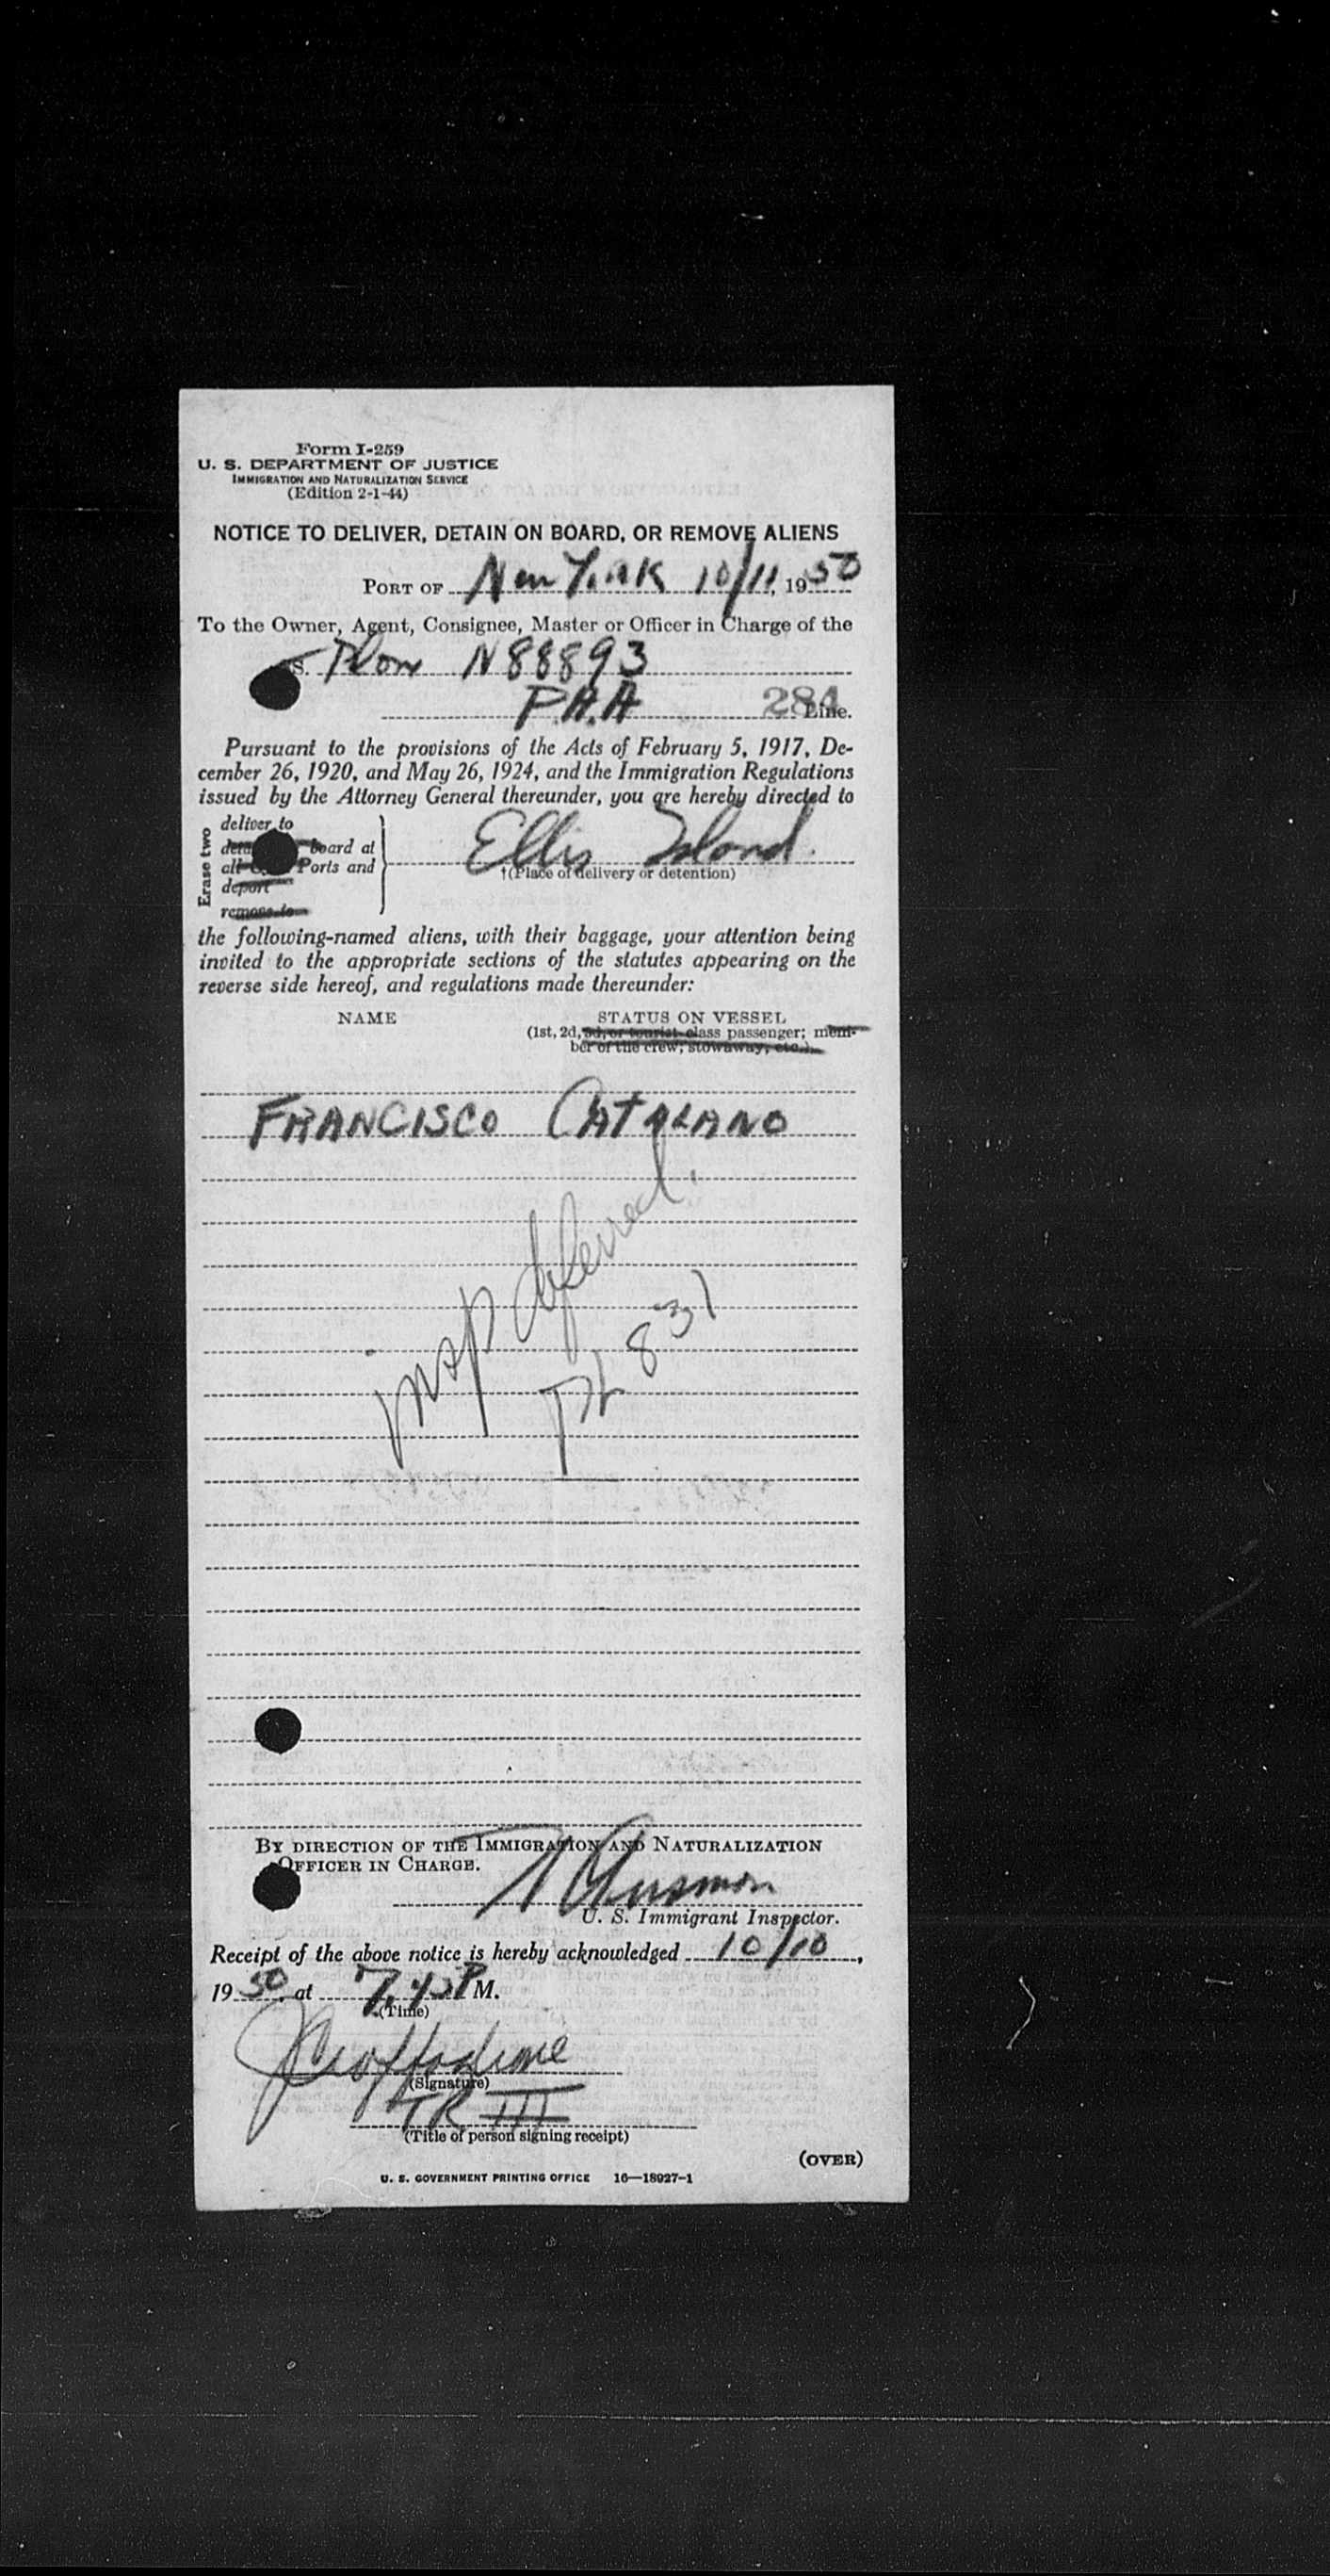 Form I-259
U. S. DEPARTMENT OF JUSTICE
IMMIGRATION AND NATURALIZATION SERVICE
(Edition 2-1-44)
NOTICE TO DELIVER, DETAIN ON BOARD, OR REMOVE ALIENS
PORT OF New York 10/11, 1950
To the Owner, Agent, Consignee, Master or Officer in Charge of the
S. N88893
P.A.A 284 Line.
Pursuant to the provisions of the Acts of February 5, 1917, De-
cember 26, 1920, and May 26, 1924, and the Immigration Regulations
issued by the Attorney General thereunder, you are hereby directed to
Erase two
deliver to
board at
all Ports and
deport
remove to
Ellis Island.
†(Place of delivery or detention)
the following-named aliens, with their baggage, your attention being
invited to the appropriate sections of the statutes appearing on the
reverse side hereof, and regulations made thereunder:
NAME STATUS ON VESSEL
(1st, 2d, 3d, or tourist-class passenger; mem-
ber of the crew; stowaway, etc.)
FRANCISCO CATALANO
insp deferred.
831
BY DIRECTION OF THE IMMIGRATION AND NATURALIZATION
OFFICER IN CHARGE.
U. S. Immigrant Inspector.
Receipt of the above notice is hereby acknowledged 10/10,
1950, at 7.45 P M.
(Time)
(Signature)
TR III
(Title of person signing receipt)
(OVER)
U. S. GOVERNMENT PRINTING OFFICE 16—18927-1